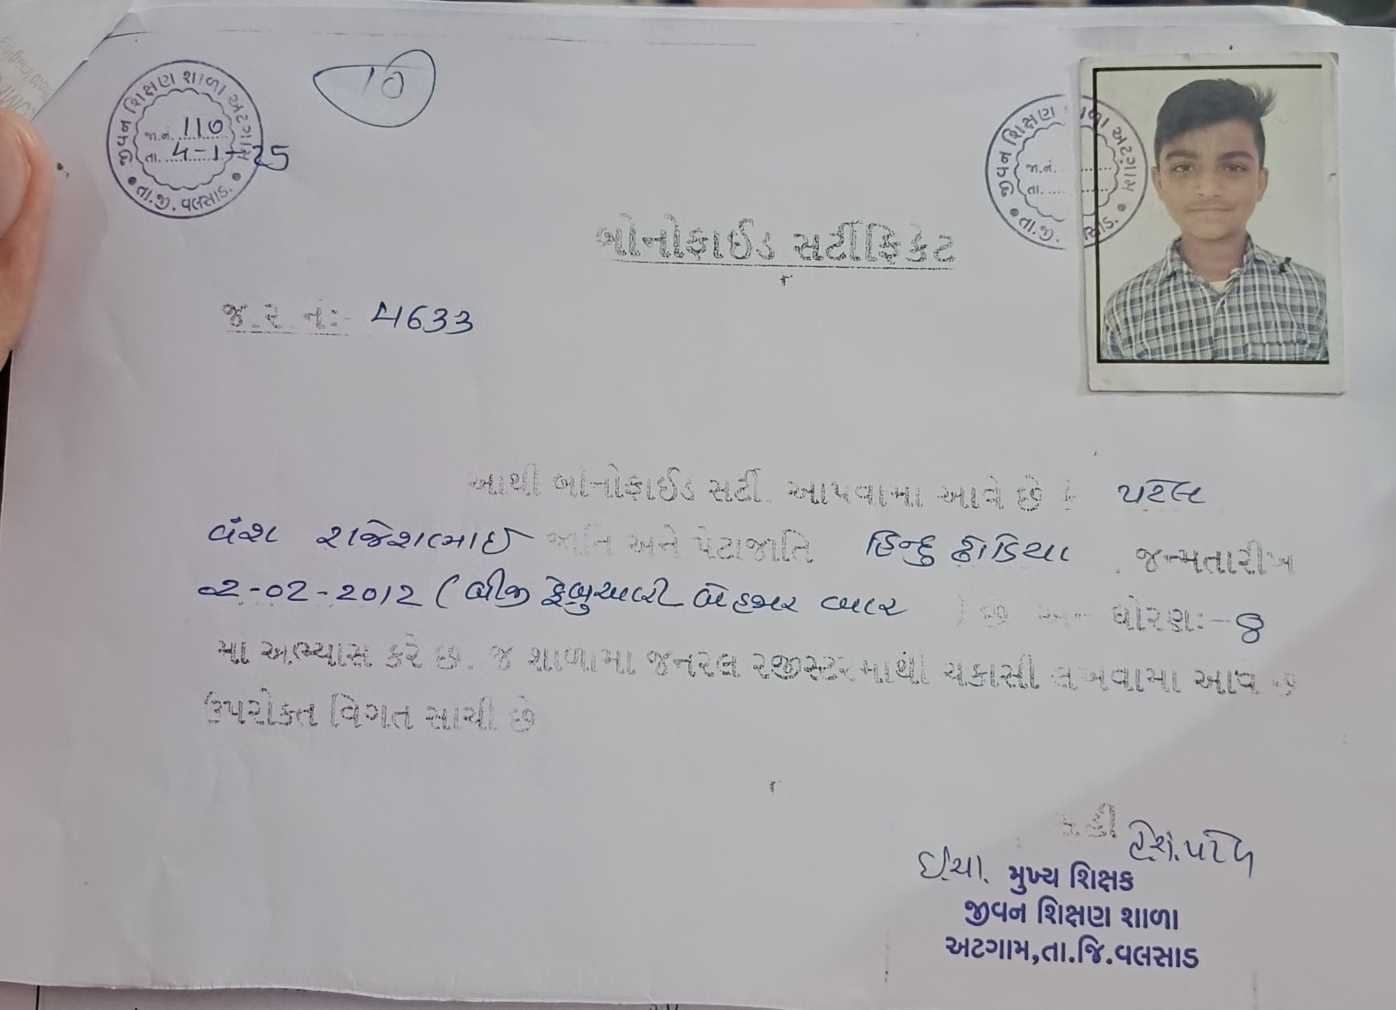 જીવન શિક્ષણ શાળા અટગામ
જા.નં. 110
તા. 4-1-25
તા.જી. વલસાડ.
10
જીવન શિક્ષણ શાળા અટગામ
જા.નં.
તા.
તા.જી. વલસાડ.
બોનોફાઈડ સર્ટીફિકેટ
જ.ર.નં:- 4633
આથી બોનોફાઈડ સર્ટી. આપવામા આવે છે કે પટેલ
વંશ રાજેશભાઈ જાતિ અને પેટાજાતિ હિન્દુ ઢોડિયા . જન્મતારીખ
02-02-2012 (બીજી ફેબ્રુઆરી બેહજાર બાર છે અને ધોરણ:- 8
મા અભ્યાસ કરે છે. જે શાળામા જનરલ રજીસ્ટરમાથી ચકાસી લખવામા આવે છે
ઉપરોક્ત વિગત સાચી છે
સહી
ઈ.ચા. મુખ્ય શિક્ષક
જીવન શિક્ષણ શાળા
અટગામ,તા.જિ.વલસાડ